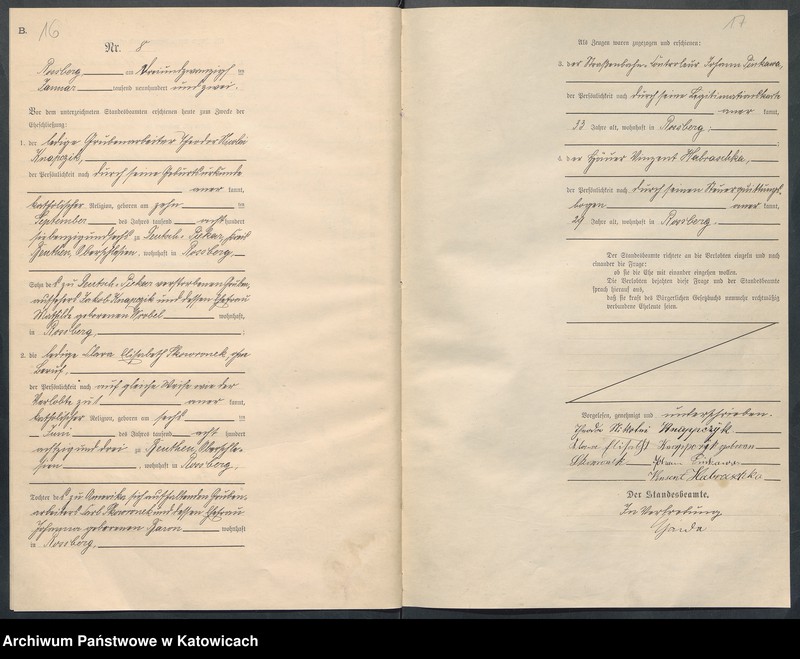 B. 16
Nr. 8
Rossberg am dreiundzwanzigsten
Januar tausend neunhundert und zwei.
Vor dem unterzeichneten Standesbeamten erschienen heute zum Zwecke der
Eheschließung:
1. der ledige Grubenarbeiter Theodor Nicolai
Knapczik,
der Persönlichkeit nach durch seine Geburtsurkunde
aner kannt,
katholischer Religion, geboren am zehn ten
September des Jahres tausend acht hundert
siebenzig und sechs zu Deutsch-Piekar, Kreis
Beuthen, Oberschlesien, wohnhaft in Rossberg,
Sohn des zu Deutsch-Piekar verstorbenen
Jakob Knapczik und dessen Ehefrau
Mathilde geborenen Wrobel wohnhaft,
in Rossberg,
2. die ledige Clara Elisabeth Skowronek, ohne
Beruf,
der Persönlichkeit nach auf gleiche Weise wie der
Verlobte zu 1 aner kannt,
katholischer Religion, geboren am sechs ten
Juni des Jahres tausend acht hundert
achtzig und drei zu Beuthen, Oberschle-
sien, wohnhaft in Rossberg,
Tochter des zu Amerika sich aufhaltenden Gruben-
arbeiters Carl Skowronek und dessen Ehefrau
Johanna geborenen wohnhaft
in Rossberg,
17
Als Zeugen waren zugezogen und erschienen:
3. der Straßenbahn- Johann Pinkawa,
der Persönlichkeit nach durch seine Legitimationskarte
aner kannt,
33 Jahre alt, wohnhaft in Rossberg;
4. der Häuer Vinzent Habraschka,
der Persönlichkeit nach durch seinen Steuerquittungs-
bogen aner kannt,
29 Jahre alt, wohnhaft in Rossberg.
Der Standesbeamte richtete an die Verlobten einzeln und nach
einander die Frage:
ob sie die Ehe mit einander eingehen wollen.
Die Verlobten bejahten diese Frage und der Standesbeamte
sprach hierauf aus,
daß sie kraft des Bürgerlichen Gesetzbuchs nunmehr rechtmäßig
verbundene Eheleute seien.
Vorgelesen, genehmigt und unterschrieben.
Theodor Nikolai Knappczyk
Clara Elisabeth Knappczyk geboren
Skowronek Johann Pinkawa
Vincent Habraschka
Der Standesbeamte.
In Vertretung
Archiwum Państwowe w Katowicach